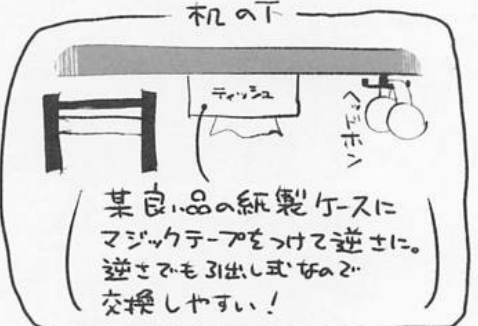 机の下
ティッシュ
ヘッドホン
某良い品の紙製ケースに
マジックテープをつけて逆さに。
逆さでも引出し式なので
交換しやすい！